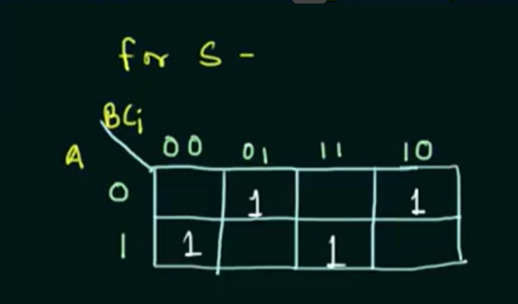 for S -
BCi
A 00 01 11 10
0 1 1
1 1 1